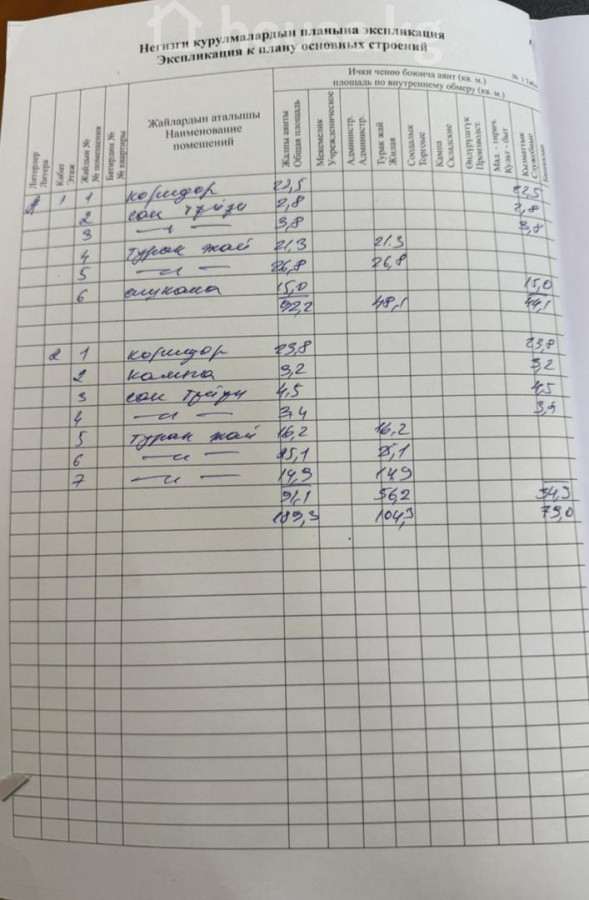 house.kg
Негизги курулмалардын планына экспликация
Экспликация к плану основных строений
Ички ченөө боюнча аянт (кв. м.)
площадь по внутреннему обмеру (кв. м.)
Литерлер
Литера
Кабат
Этаж
Жайдын №
№ помещения
Батирдин №
№ квартиры
Жайлардын аталышы
Наименование
помещений
Жалпы аянты
Общая площадь
Мекемелик
Учрежденческое
Администр.
Администр.
Турак жай
Жилая
Соодалык
Торговые
Кампа
Складские
Өндүрүштүк
Производст.
Мад. - тирич.
Культ - быт
Кызматтык
Служебные
1 1 коридор 22,5 22,5
2 сан түйүн 2,8 2,8
3 — „ — 3,8 3,8
4 турак жай 21.3 21.3
5 — „ — 26,8 26,8
6 ашкана 15,0 15,0
92,2 48,1 44,1
2 1 коридор 23,8 23,8
2 кампа 3,2 3,2
3 сан түйүн 4,5 4,5
4 — „ — 3,4 3,4
5 турак жай 16,2 16,2
6 — „ — 25,1 25,1
7 — „ — 14,9 149
91,1 56,2 34,9
189,3 104,3 79,0